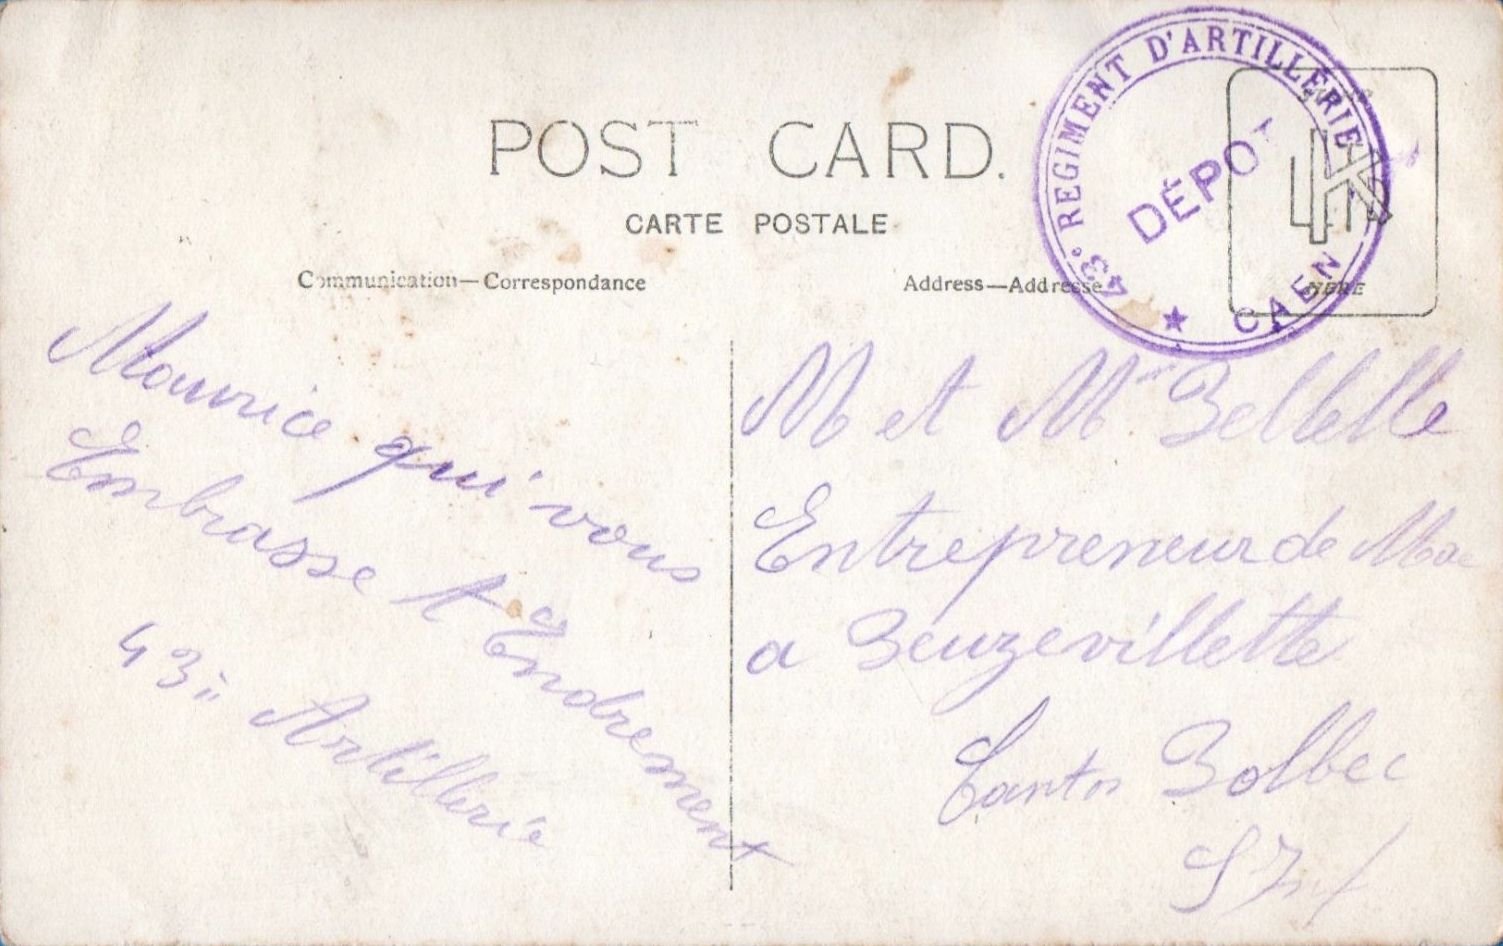 POST CARD.
CARTE POSTALE
Communication—Correspondance
Address—Addresse
43e REGIMENT D'ARTILLÉRIE
DÉPOT
★ CAEN
HERE
Maurice qui vous
Embrasse
43ii Artillerie
M et Mme
Entrepreneur de
a Beuzevillette
Canton Bolbec
S Inf